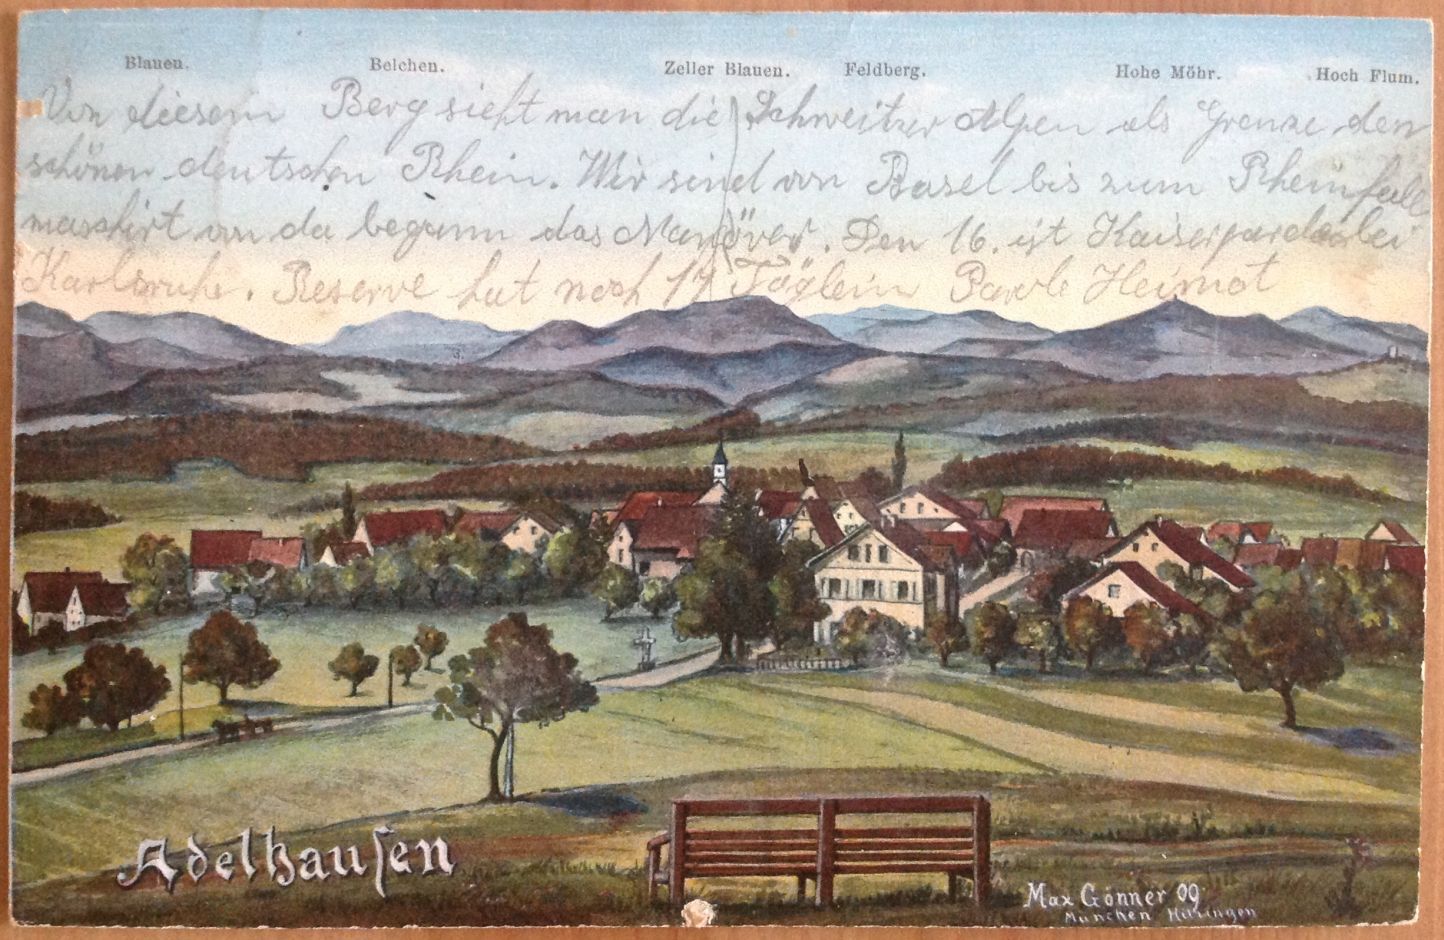 Blauen. Belchen. Zeller Blauen. Feldberg. Hohe Möhr. Hoch Flum.
Von diesem Berg sieht man die Schweitzer Alpen als Grenze den
schönen deutschen Rhein. Wir sind von Basel bis zum Rheinfall
maschirt von da begann das Manöver. Den 16. ist Kaiserparade bei
Karlsruhe. Reserve hat noch 17 Täglein Parole Heimat
Adelhausen
Max Gönner 09
München